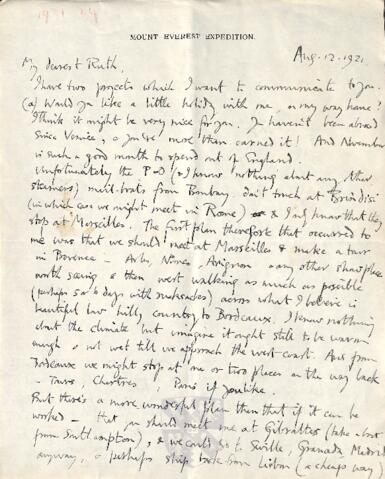 1921
MOUNT EVEREST EXPEDITION.
Aug. 12. 1921
My dearest Ruth,
I have two projects which I want to communicate to you.
(a) Would you like a little holiday with me, on my way home?
I think it might be very nice for you. You haven't been abroad
since Venice, & you've more than earned it! And November
is such a good month to spend out of England.
Unfortunately the P-O (& I know nothing about any other
steamers) mail-boats from Bombay don't touch at Brindisi
(in which case we might meet in Rome) & I only know that they
stop at Marseilles. The first plan therefore that occurred to
me was that we should meet at Marseilles & make a tour
in Provence - Arles, Nimes, Avignon & any other show place
worth seeing & then west walking as much as possible
(perhaps 5 or 6 days with rucksacks) across what I believe is
beautiful low hilly country to Bordeaux. I know nothing
about the climate but imagine it ought still to be warm
enough & not wet till we approach the west coast. And from
Bordeaux we might stop at one or two places on the way back
- Tours, Chartres, Paris if you like.
But there's a more wonderful plan than that if it can be
worked - that you should meet me at Gibraltar (take boat
from Southampton), & we could go to Seville, Granada, Madrid
anyway, & perhaps ship back from Lisbon (a cheap way)